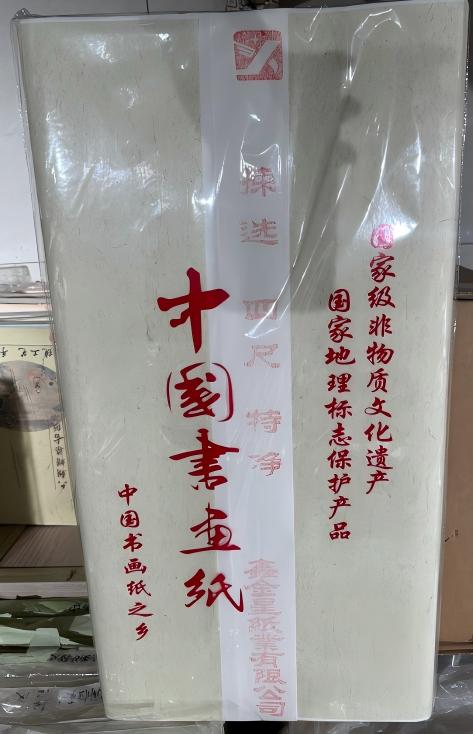 国家级非物质文化遗产
国家地理标志保护产品
揀选 四尺 特净
鑫金星紙業有限公司
中國書画紙
中国书画纸之乡